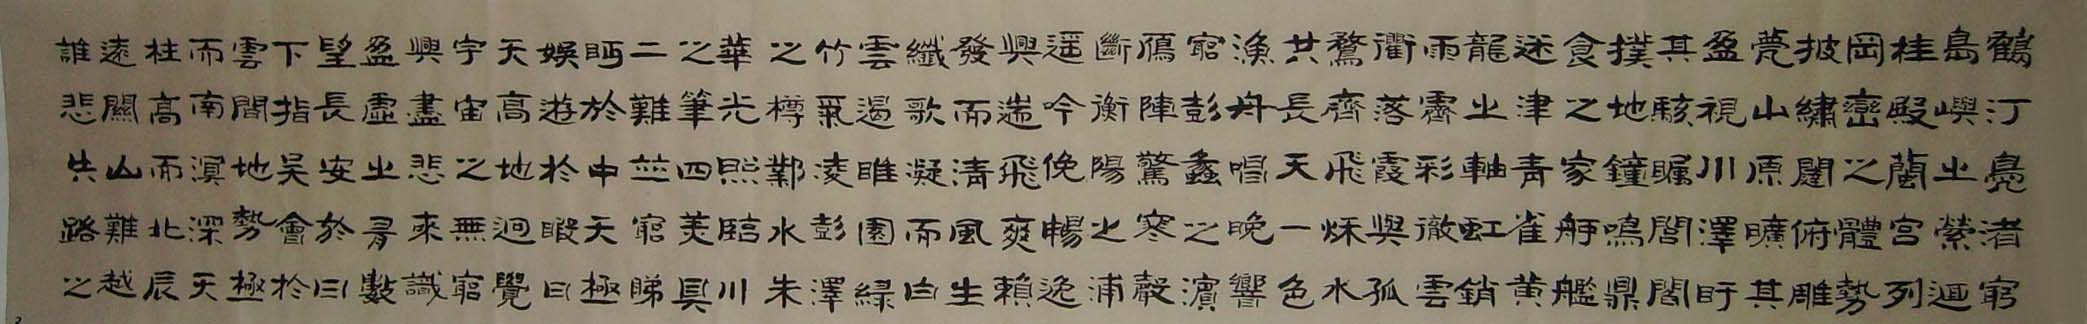 鶴汀鳧渚窮
島嶼之縈迴
桂殿蘭宮列
岡巒之體勢
披繡闥俯雕
甍山原曠其
盈視川澤盱
其駭矚閭閻
撲地鐘鳴鼎
食之家舸艦
迷津青雀黃
龍之軸虹銷
雨霽彩徹雲
衢落霞與孤
鶩齊飛秋水
共長天一色
漁舟唱晚響
窮彭蠡之濱
鴈陣驚寒聲
斷衡陽之浦
遥吟俛暢逸
興遄飛爽籟
發而清風生
纖歌凝而白
雲遏睢園綠
竹氣凌彭澤
之樽鄴水朱
華光照臨川
之筆四美具
二難並窮睇
眄於中天極
娛遊於暇日
天高地迥覺
宇宙之無窮
興盡悲來識
盈虛之有數
望長安於日
下指吳會於
雲間地勢極
而南溟深天
柱高而北辰
遠關山難越
誰悲失路之